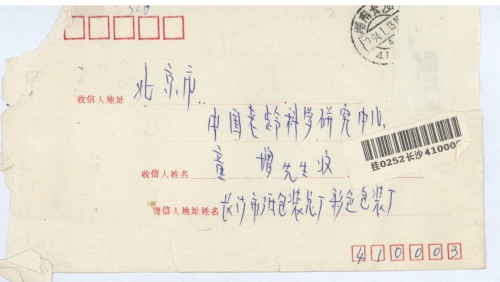 收信人地址 北京市
中国老龄科学研究中心
桂0252长沙410000
收信人姓名 童增先生收
寄信人地址姓名 长沙市 包装总厂彩色包装厂
410003